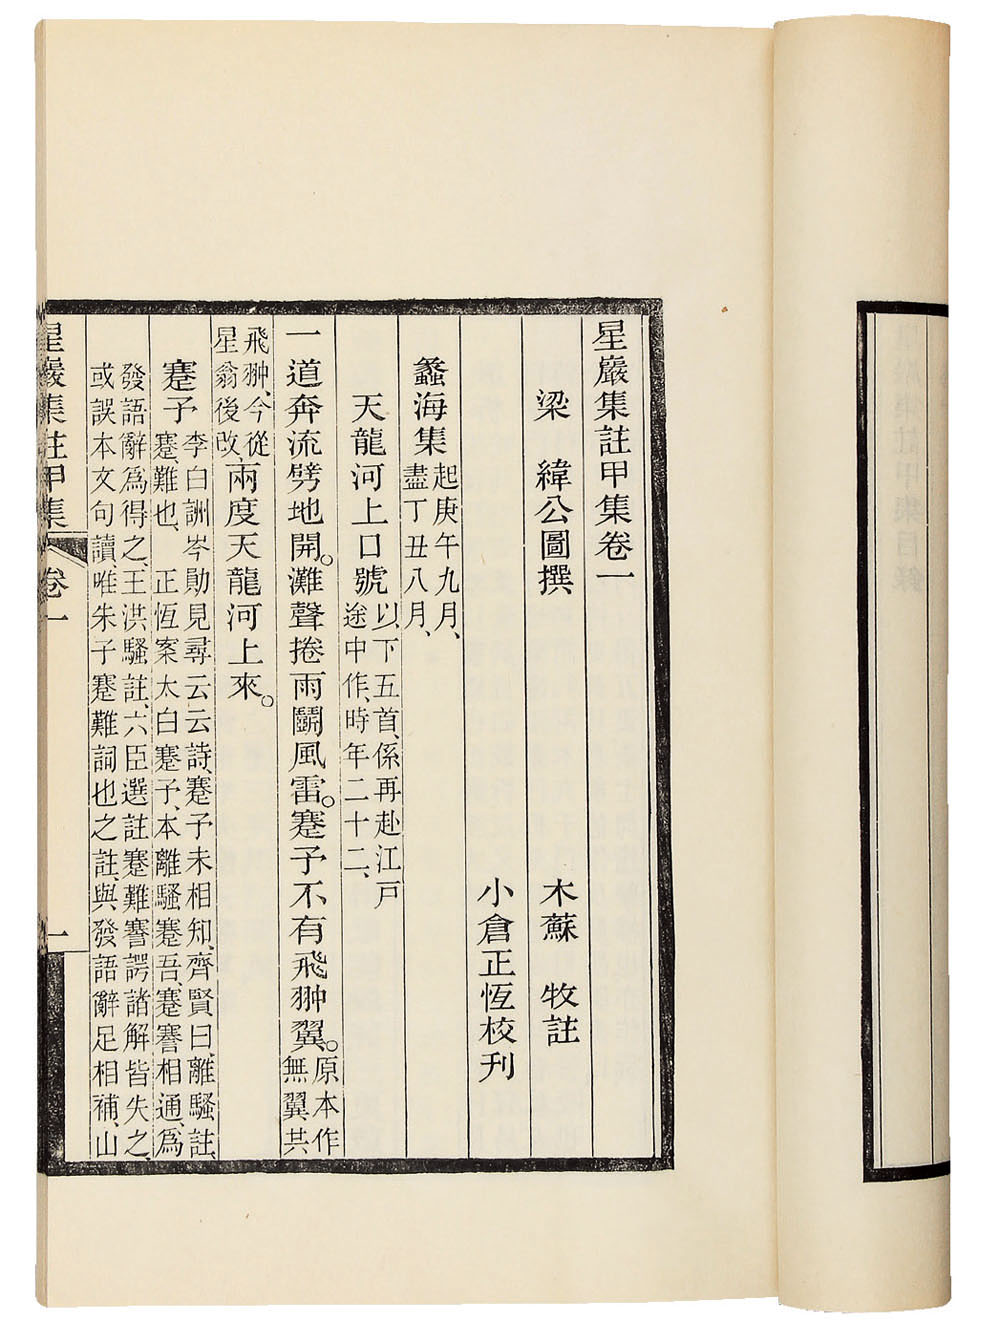 星巖集註甲集卷一
梁　緯公圖撰　木蘇　牧註
小倉正恆校刊
蠡海集起庚午九月、盡丁丑八月、
天龍河上口號以下五首、係再赴江戸途中作、時年二十二、
一道奔流劈地開。灘聲捲雨鬭風雷。蹇予不有飛翀翼。原本作無翼共
飛翀、今從星翁後改、兩度天龍河上來。
蹇予李白詶岑勛見尋云云詩、蹇予未相知、齊賢曰、離騷註、蹇難也、　正恆案太白蹇予、本離騷蹇吾、蹇謇相通、爲
發語辭爲得之、王洪騷註、六臣選註蹇難謇諤諸解皆失之、或誤本文句讀、唯朱子蹇難詞也之註、與發語辭足相補、山
星巖集註甲集
卷一
一